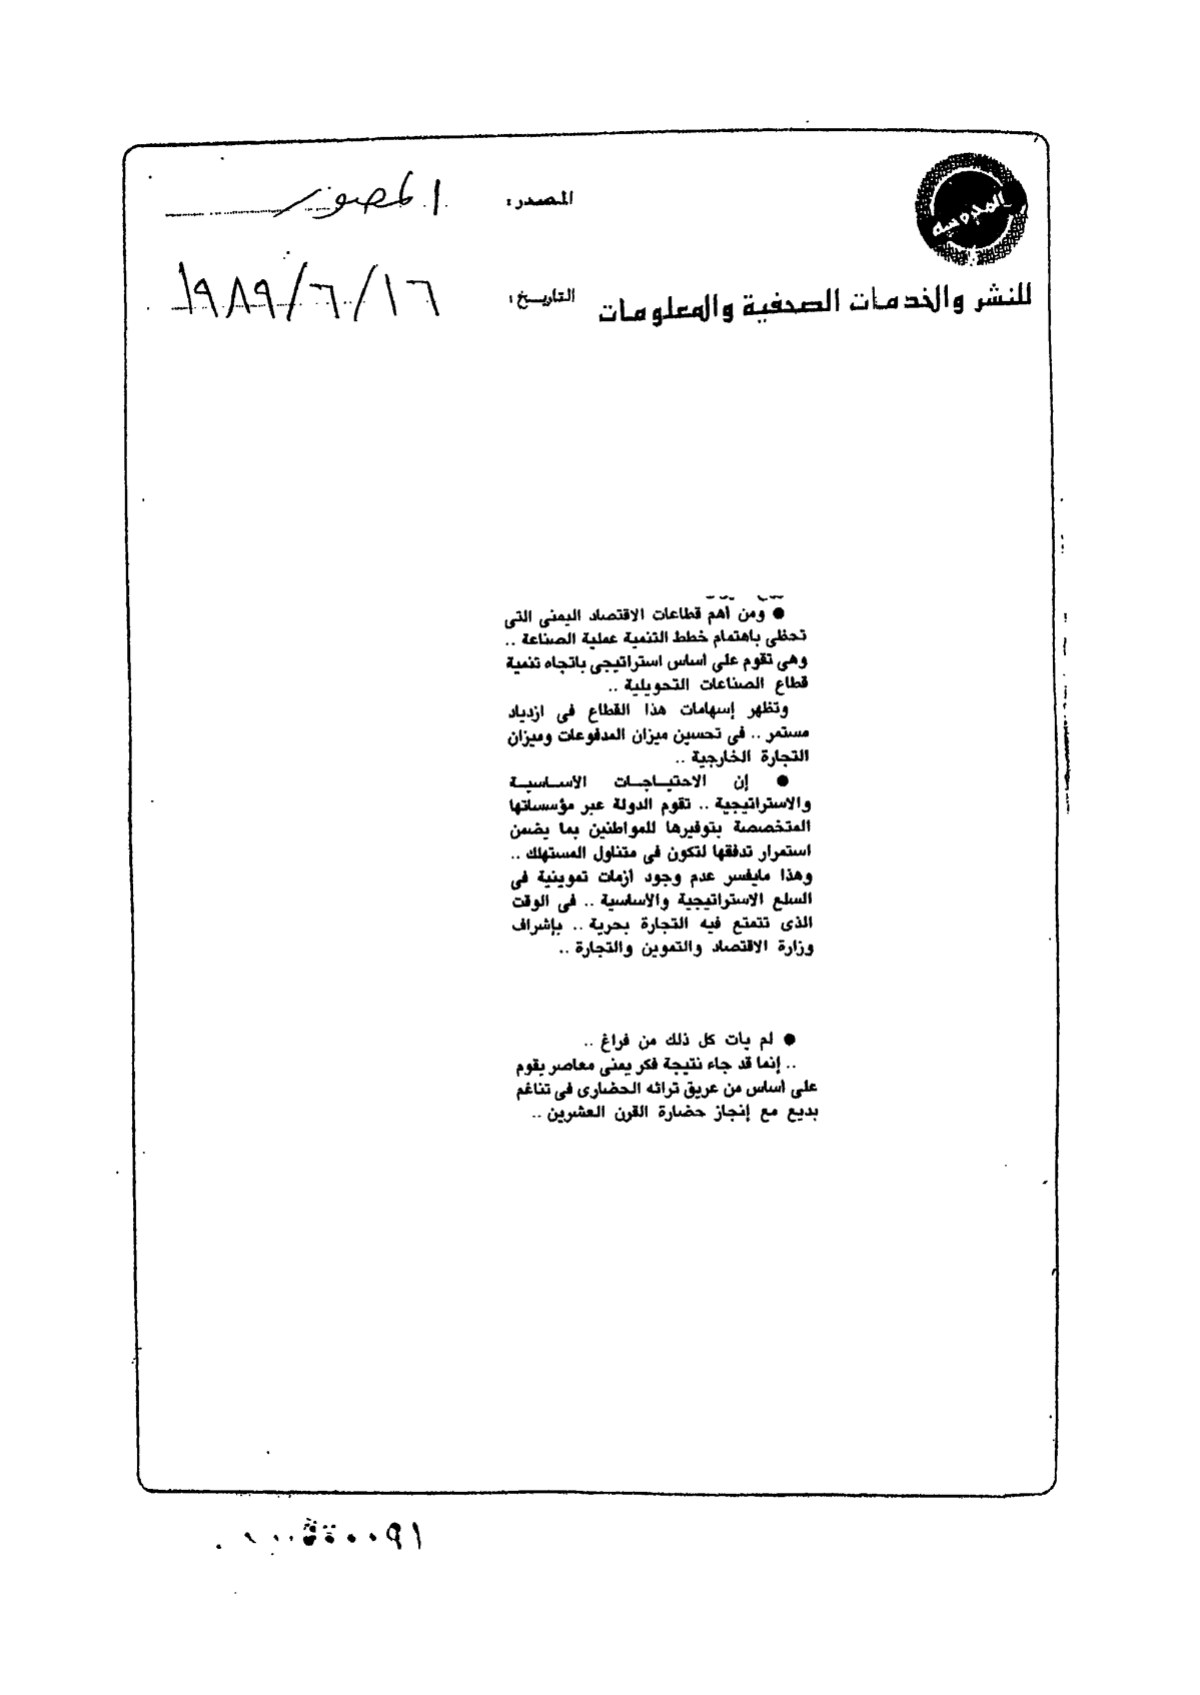 المصدر: المصور
للنشر والخدمات الصحفية والمعلومات
التاريخ: ١٦/٦/١٩٨٩
● ومن أهم قطاعات الاقتصاد اليمنى التى
تحظى باهتمام خطط التنمية عملية الصناعة ..
وهى تقوم على أساس استراتيجى باتجاه تنمية
قطاع الصناعات التحويلية ..
وتظهر إسهامات هذا القطاع فى ازدياد
مستمر .. فى تحسين ميزان المدفوعات وميزان
التجارة الخارجية ..
● إن الاحتياجات الأساسية
والاستراتيجية .. تقوم الدولة عبر مؤسساتها
المتخصصة بتوفيرها للمواطنين بما يضمن
استمرار تدفقها لتكون فى متناول المستهلك ..
وهذا مايفسر عدم وجود أزمات تموينية فى
السلع الاستراتيجية والأساسية .. فى الوقت
الذى تتمتع فيه التجارة بحرية .. بإشراف
وزارة الاقتصاد والتموين والتجارة ..
● لم يات كل ذلك من فراغ ..
.. إنما قد جاء نتيجة فكر يمنى معاصر يقوم
على أساس من عريق تراثه الحضارى فى تناغم
بديع مع إنجاز حضارة القرن العشرين ..